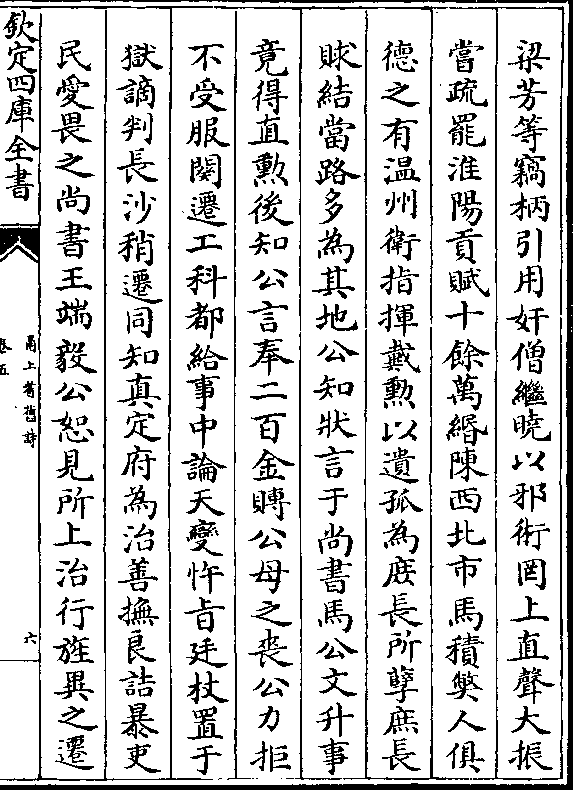 梁芳等竊柄引用奸僧繼曉以邪術罔上直聲大振
嘗疏罷淮陽貢賦十餘萬緡陳西北市馬積弊人俱
德之有温州衛指揮戴勲以遺孤為庶長所孽庶長
賕結當路多為其地公知狀言于尚書馬公文升事
竟得直勲後知公言奉二百金賻公母之喪公力拒
不受服闋遷工科都給事中論天變忤㫖廷杖置于
獄謫判長沙稍遷同知真定府為治善撫良詰暴吏
民愛畏之尚書王端毅公恕見所上治行旌異之遷
欽定四庫全書
甬上耆舊詩
卷五
六